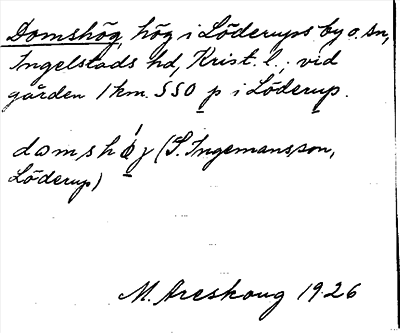 Domshög, hög i Löderups by o. sn,
Ingelstads hd, Krist. l.; vid
gården 1 km. SSO p i Löderup.
domshǿj (S. Ingemansson,
Löderup)
M. Areskoug 1926